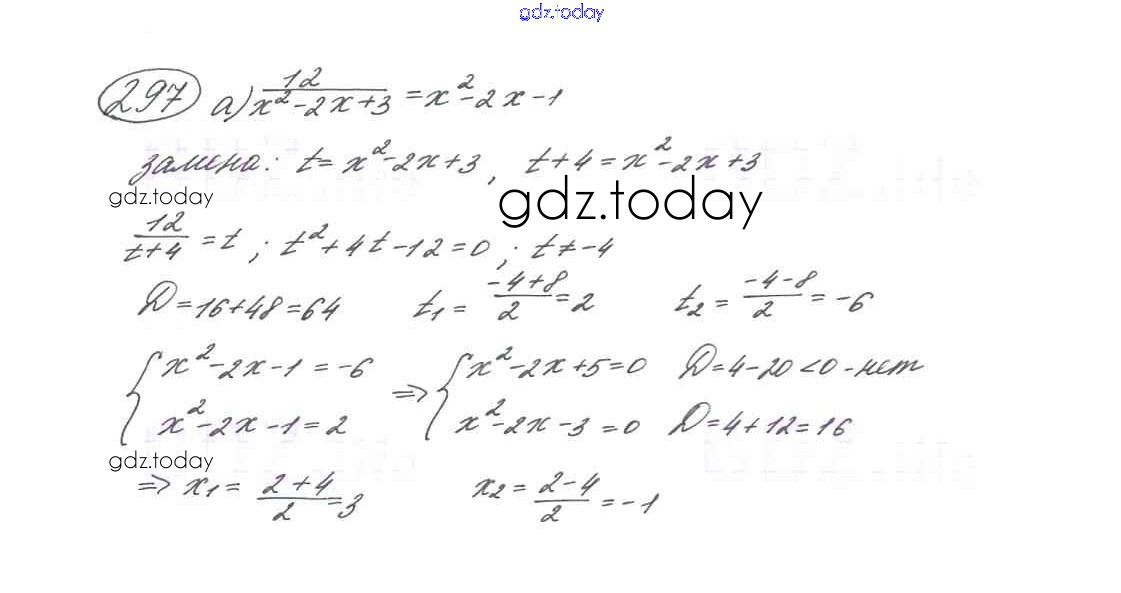 gdz.today
297 а) 12/(x²-2x+3) = x²-2x-1
замена: t = x²-2x+3, t+4 = x²-2x+3
gdz.today
gdz.today
12/(t+4) = t ; t²+4t-12=0 ; t≠-4
D=16+48=64 t₁ = (-4+8)/2 = 2 t₂ = (-4-8)/2 = -6
{ x²-2x-1=-6 ⇒ { x²-2x+5=0 D=4-20<0-нет
x²-2x-1=2 x²-2x-3=0 D=4+12=16
gdz.today
⇒ x₁ = (2+4)/2 = 3 x₂ = (2-4)/2 = -1